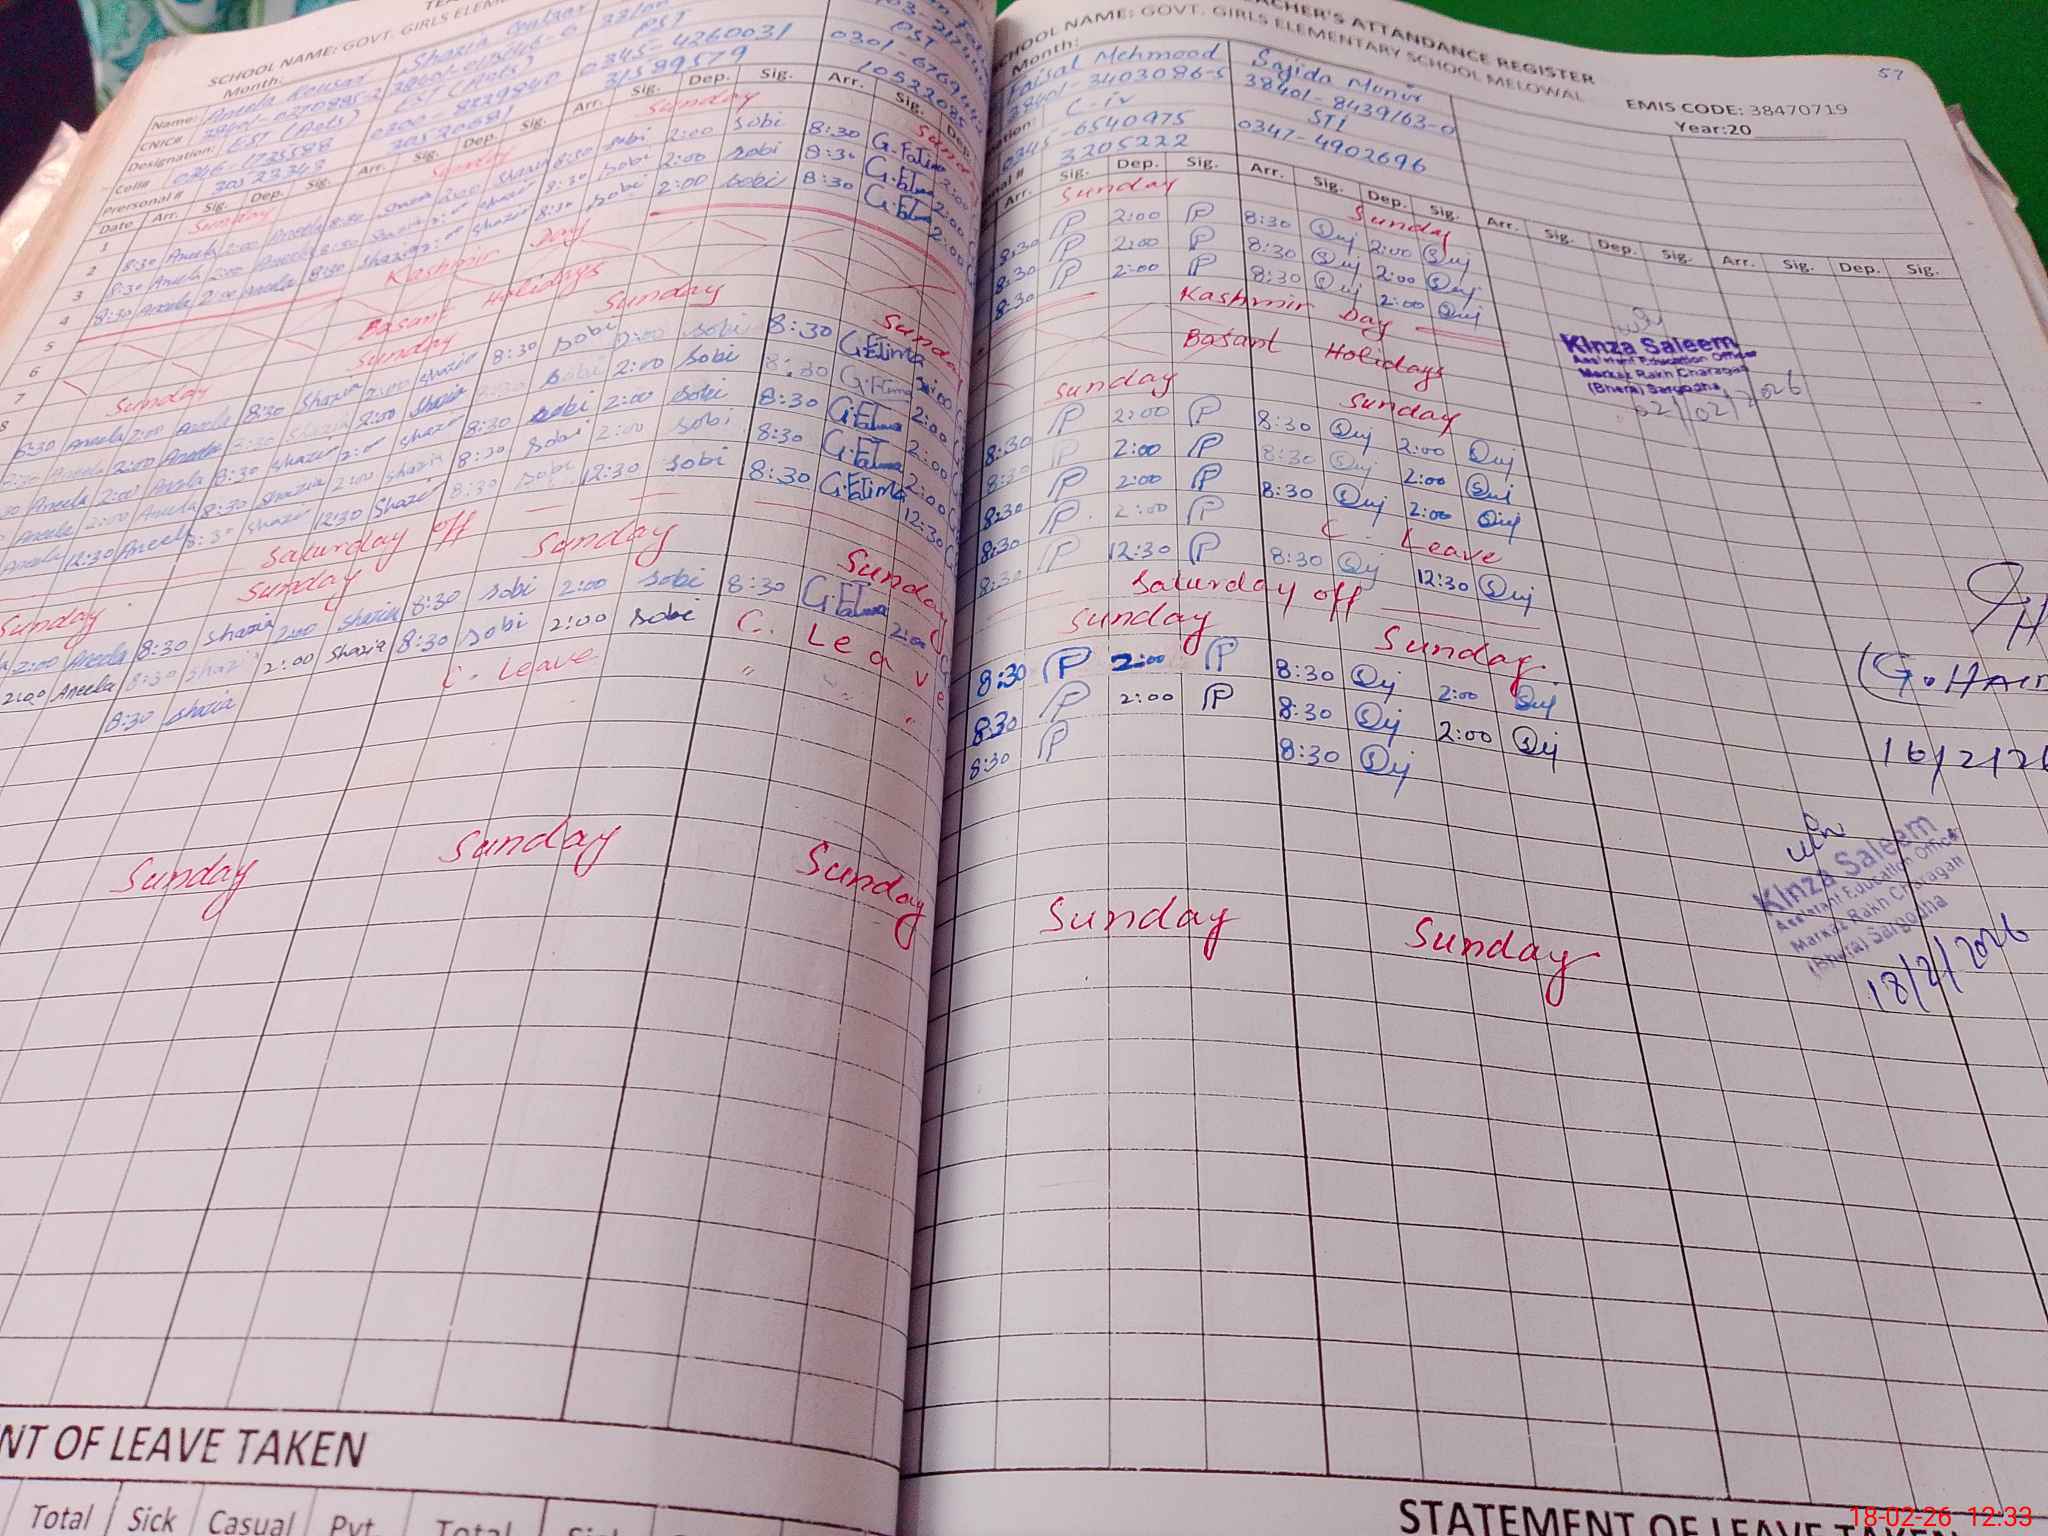 SCHOOL NAME: GOVT. GIRLS
Month:
Name: Aneela Kousar
CNIC#
Designation: EST (Arts)
Cell#
Prersonal # 30523343
EST (Arts)
30520681
PST
0345-4260031
31589579
PST
10522085
Date Arr. Sig. Dep. Sig. Arr. Sig. Dep. Sig. Arr. Sig. Dep. Sig. Arr. Sig. Dep.
1 Sunday Sunday Sunday Sunday
2 8:30 Aneela 2:00 Aneela 8:30 Shazia 2:00 Shazia 8:30 Sobi 2:00 Sobi 8:30 G.Fatima 2:00
3 8:30 Aneela 2:00 Aneela 8:30 Shazia 2:00 Shazia 8:30 Sobi 2:00 Sobi 8:30 G.Fatima 2:00
4 8:30 Aneela 2:00 Aneela 8:30 Shazia 2:00 Shazia 8:30 Sobi 2:00 Sobi 8:30 G.Fatima 2:00
5 Kashmir Day
6 Basant Holidays
7
8 Sunday Sunday Sunday Sunday
8:30 Aneela 2:00 Aneela 8:30 Shazia 2:00 Shazia 8:30 Sobi 2:00 Sobi 8:30 G.Fatima 2:00
Aneela 2:00 Aneela 8:30 Shazia 2:00 Shazia 8:30 Sobi 2:00 Sobi 8:30 G.Fatima 2:00
Aneela 2:00 Aneela 8:30 Shazia 2:00 Shazia 8:30 Sobi 2:00 Sobi 8:30 G.Fatima 2:00
Aneela 2:00 Aneela 8:30 Shazia 2:00 Shazia 8:30 Sobi 2:00 Sobi 8:30 G.Fatima 2:00
Aneela 12:30 Aneela 8:30 Shazia 12:30 Shazia 8:30 Sobi 12:30 Sobi 8:30 G.Fatima 12:30
Saturday off
Sunday Sunday Sunday Sunday
2:00 Aneela 8:30 Shazia 2:00 Shazia 8:30 Sobi 2:00 Sobi 8:30 G.Fatima 2:00
2:00 Aneela 8:30 Shazia 2:00 Shazia 8:30 Sobi 2:00 Sobi C. Leave
8:30 Shazia C. Leave " " "
Sunday Sunday Sunday
NT OF LEAVE TAKEN
Total Sick Casual Pvt. Total
57
TEACHER'S ATTANDANCE REGISTER
SCHOOL NAME: GOVT. GIRLS ELEMENTARY SCHOOL MELOWAL EMIS CODE: 38470719
Month: Year:20
Faisal Mehmood Sajida Munir
38401-3403086-5 38401-8439163-0
C-iv STI
6540975 0347-4902696
3205222
Arr. Sig. Dep. Sig. Arr. Sig. Dep. Sig. Arr. Sig. Dep. Sig. Arr. Sig. Dep. Sig.
Sunday Sunday
8:30 P 2:00 P 8:30 Suj 2:00 Suj
8:30 P 2:00 P 8:30 Suj 2:00 Suj
8:30 P 2:00 P 8:30 Suj 2:00 Suj
Kashmir Day
Basant Holidays
Sunday Sunday
8:30 P 2:00 P 8:30 Suj 2:00 Suj
8:30 P 2:00 P 8:30 Suj 2:00 Suj
8:30 P 2:00 P 8:30 Suj 2:00 Suj
8:30 P 2:00 P C. Leave
8:30 P 12:30 P 8:30 Suj 12:30 Suj
Saturday off
Sunday Sunday
8:30 P 2:00 P 8:30 Suj 2:00 Suj
8:30 P 2:00 P 8:30 Suj 2:00 Suj
8:30 P 8:30 Suj
Sunday Sunday
Kinza Saleem
Assistant Education Officer
Markaz Rakh Charagah
(Bhera) Sargodha
02/02/2026
16/2/26
Kinza Saleem
Assistant Education Officer
Markaz Rakh Charagah
(Bhera) Sargodha
18/2/2026
STATEMENT OF LEAVE TAKEN
18-02-26 12:33